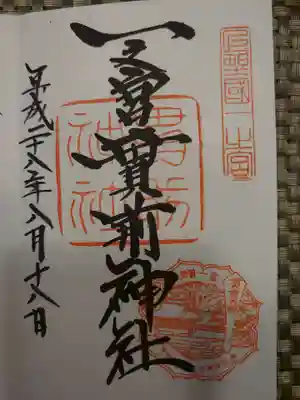 一之宮貫前神社
貫前
神社
平成二十八年八月十八日